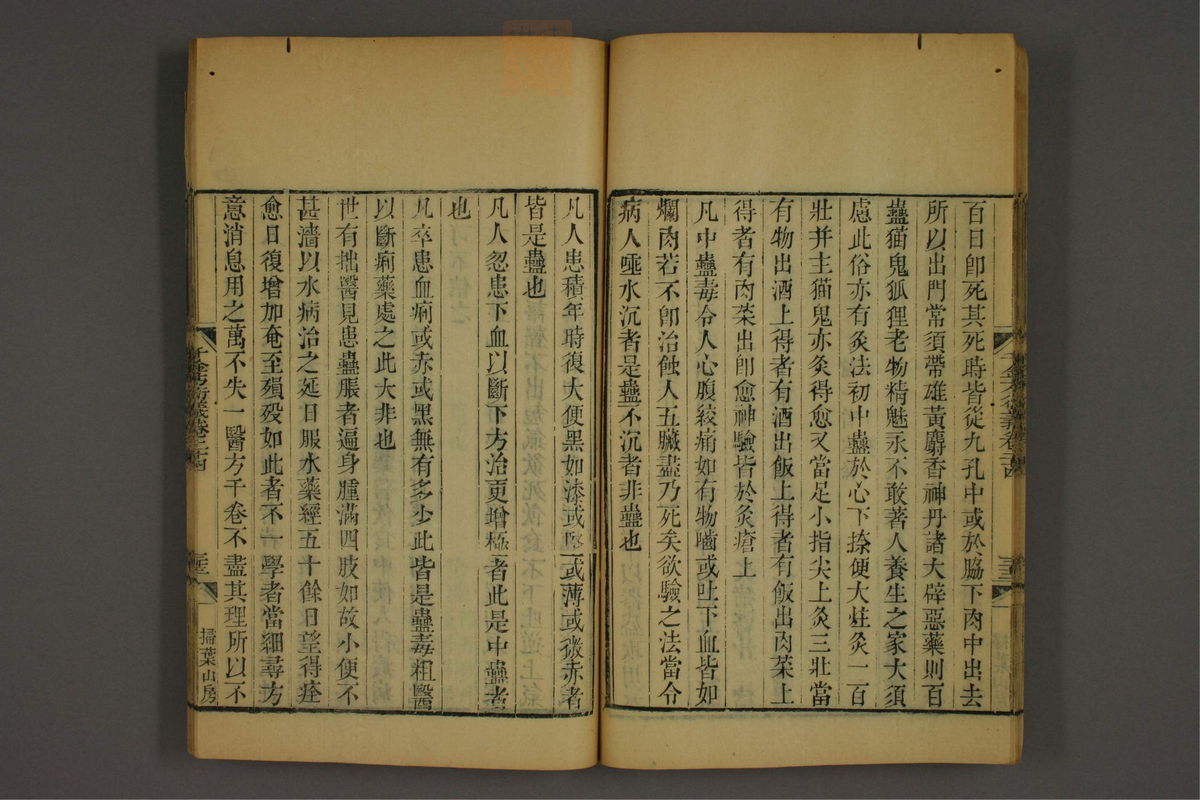 百日卽死其死時皆從九孔中或於脇下肉中出去
所以出門常須帶雄黃麝香神丹諸大辟惡藥則百
蠱猫鬼狐狸老物精魅永不敢著人養生之家大須
慮此俗亦有灸法初中蠱於心下捺便大炷灸一百
壯并主猫鬼亦灸得愈又當足小指尖上灸三壯當
有物出酒上得者有酒出飯上得者有飯出肉菜上
得者有肉菜出卽愈神驗皆於灸瘡上
凡中蠱毒令人心腹絞痛如有物嚙或吐下血皆如
爛肉若不卽治蝕人五臟盡乃死矣欲驗之法當令
病人唾水沉者是蠱不沉者非蠱也
千金方衍義卷二十四
三十三
凡人患積年時復大便黑如漆或堅或薄或微赤者
皆是蠱也
凡人忽患下血以斷下方治更增極者此是中蠱者
也
凡卒患血痢或赤或黑無有多少此皆是蠱毒粗醫
以斷痢藥處之此大非也
世有拙醫見患蠱脹者遍身腫滿四肢如故小便不
甚濇以水病治之延日服水藥經五十餘日望得痊
愈日復增加奄至殞歿如此者不一學者當細尋方
意消息用之萬不失一醫方千卷不盡其理所以不
掃葉山房